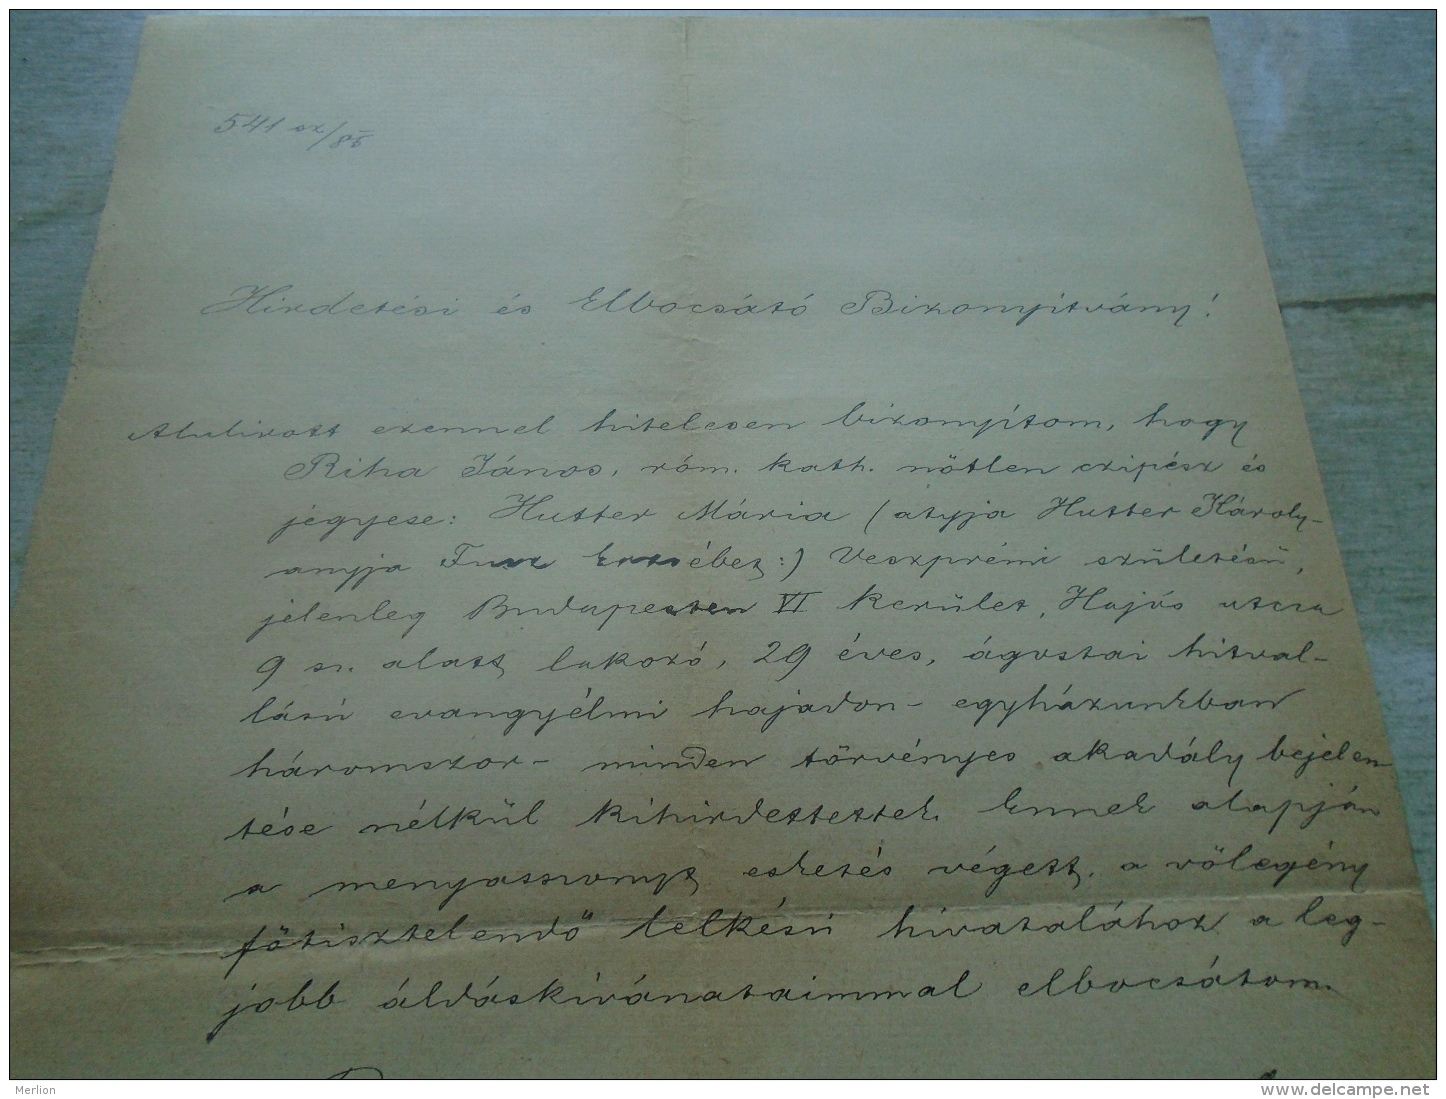 541 sz/85
Hirdetési és Elbocsátó Bizonyítvány!
Alulirott ezennel hitelesen bizonyítom, hogy
Riha János, róm. kath. nőtlen czipész és
jegyese: Hutter Mária (atyja Hutter Károly-
anyja Erzsébet:) Veszprémi születésü,
jelenleg Budapesten VI kerület, Hajós utcza
9 sz. alatt lakozó, 29 éves, ágostai hitval-
lású evangyélmi hajadon- egyházunkban
háromszor- minden törvényes akadály bejelen
tése nélkül kihirdettettek. Ennek alapján
a menyasszonyt esketés végett, a völegény
főtisztelendő lelkészi hivatalához a leg-
jobb áldáskívánataimmal elbocsátom.
Merlion
www.delcampe.net